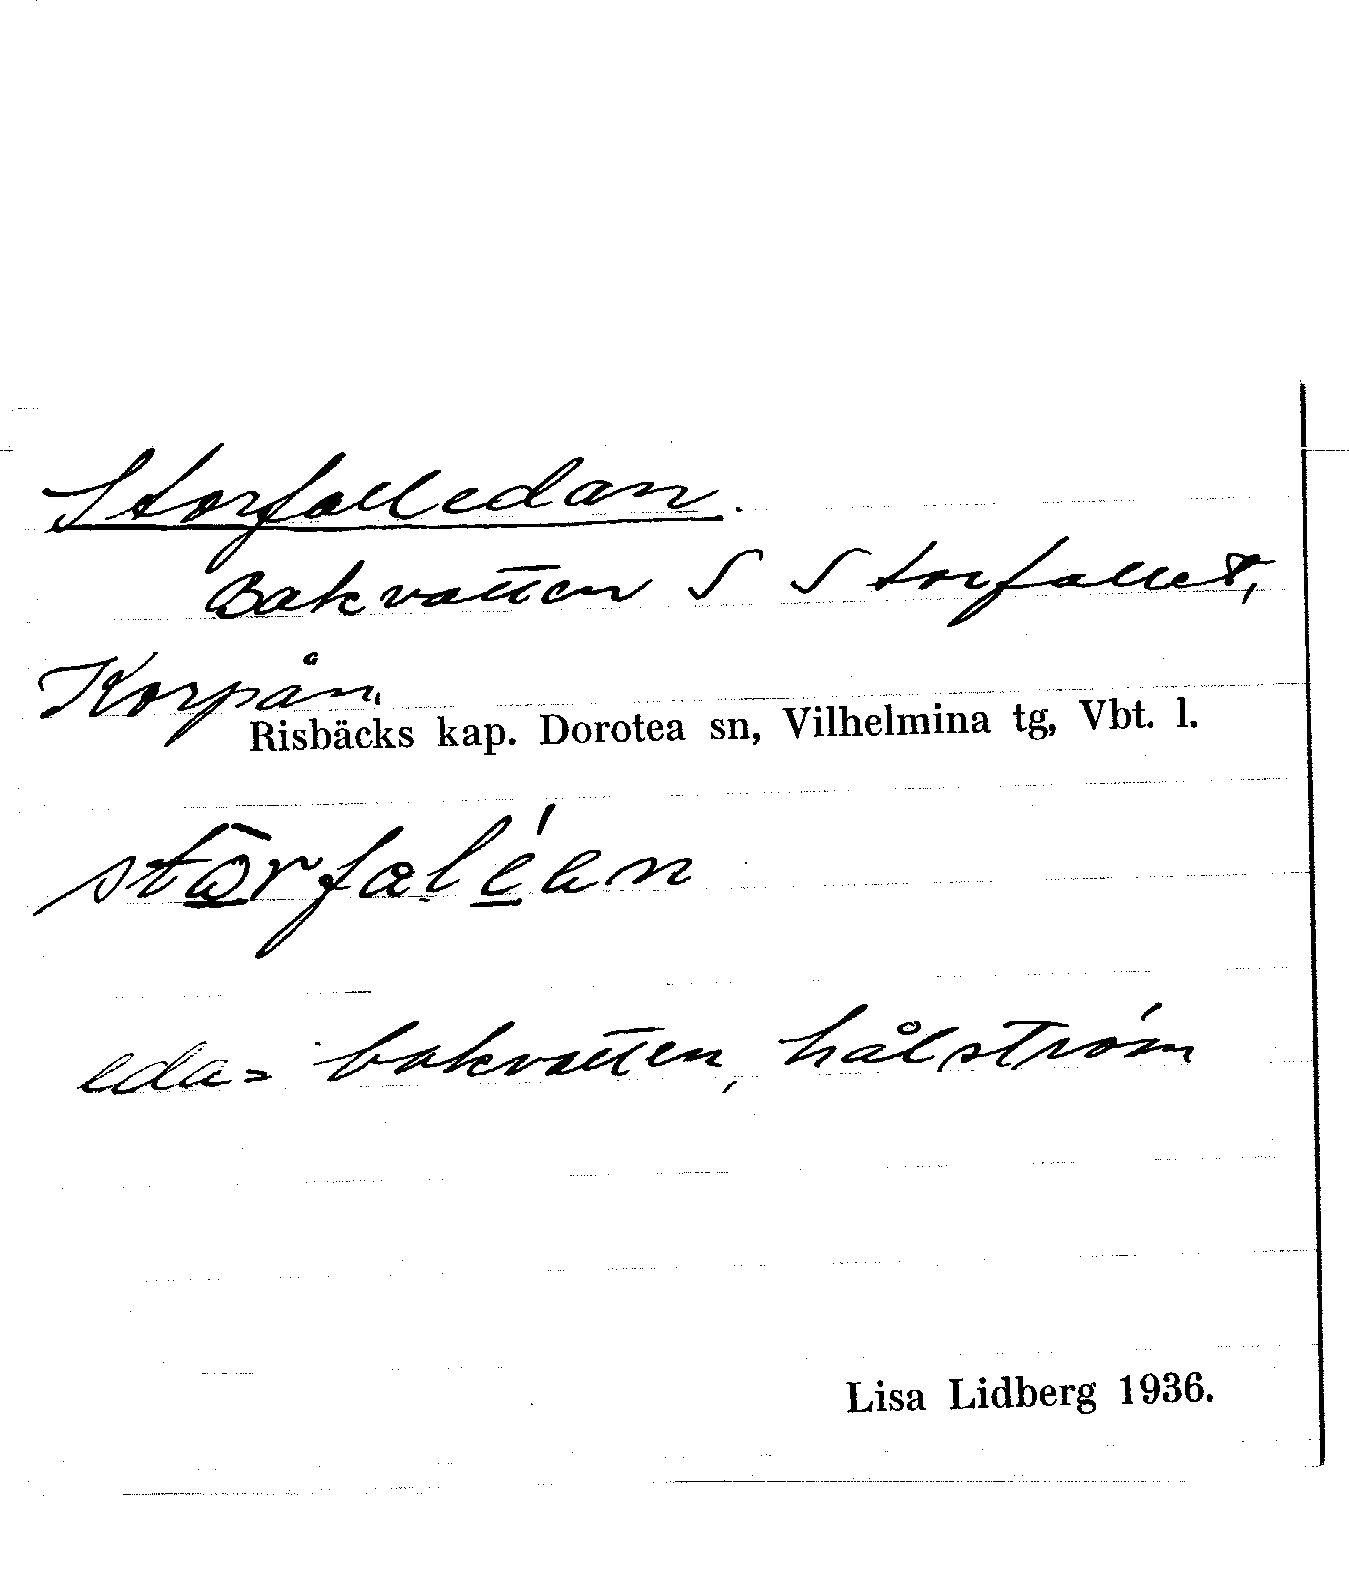 Storfalledan.
Bakvatten S Storfallet,
Korpån.
Risbäcks kap. Dorotea sn, Vilhelmina tg, Vbt. l.
eda = bakvatten, hålström
Lisa Lidberg 1936.